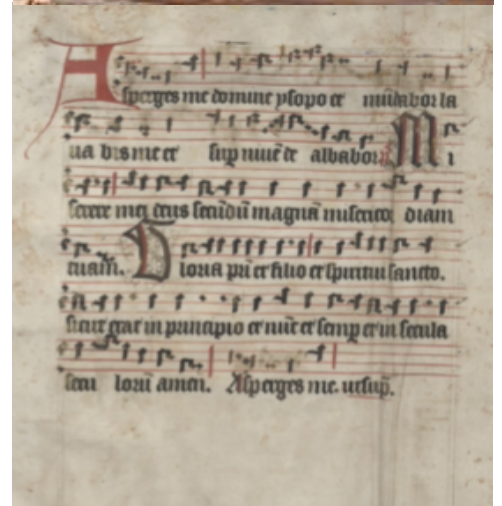 Asperges me domine ysopo et mūdabor la
ua bis me et sup niuē de albabor M i
serere mei deus secūdū magnā misericor diam
tuam. Gloria pri et filio et spiritui sancto.
sicut erat in principio et nūc et semp et in secula
secu lorū amen. Asperges me. ut sup̄.